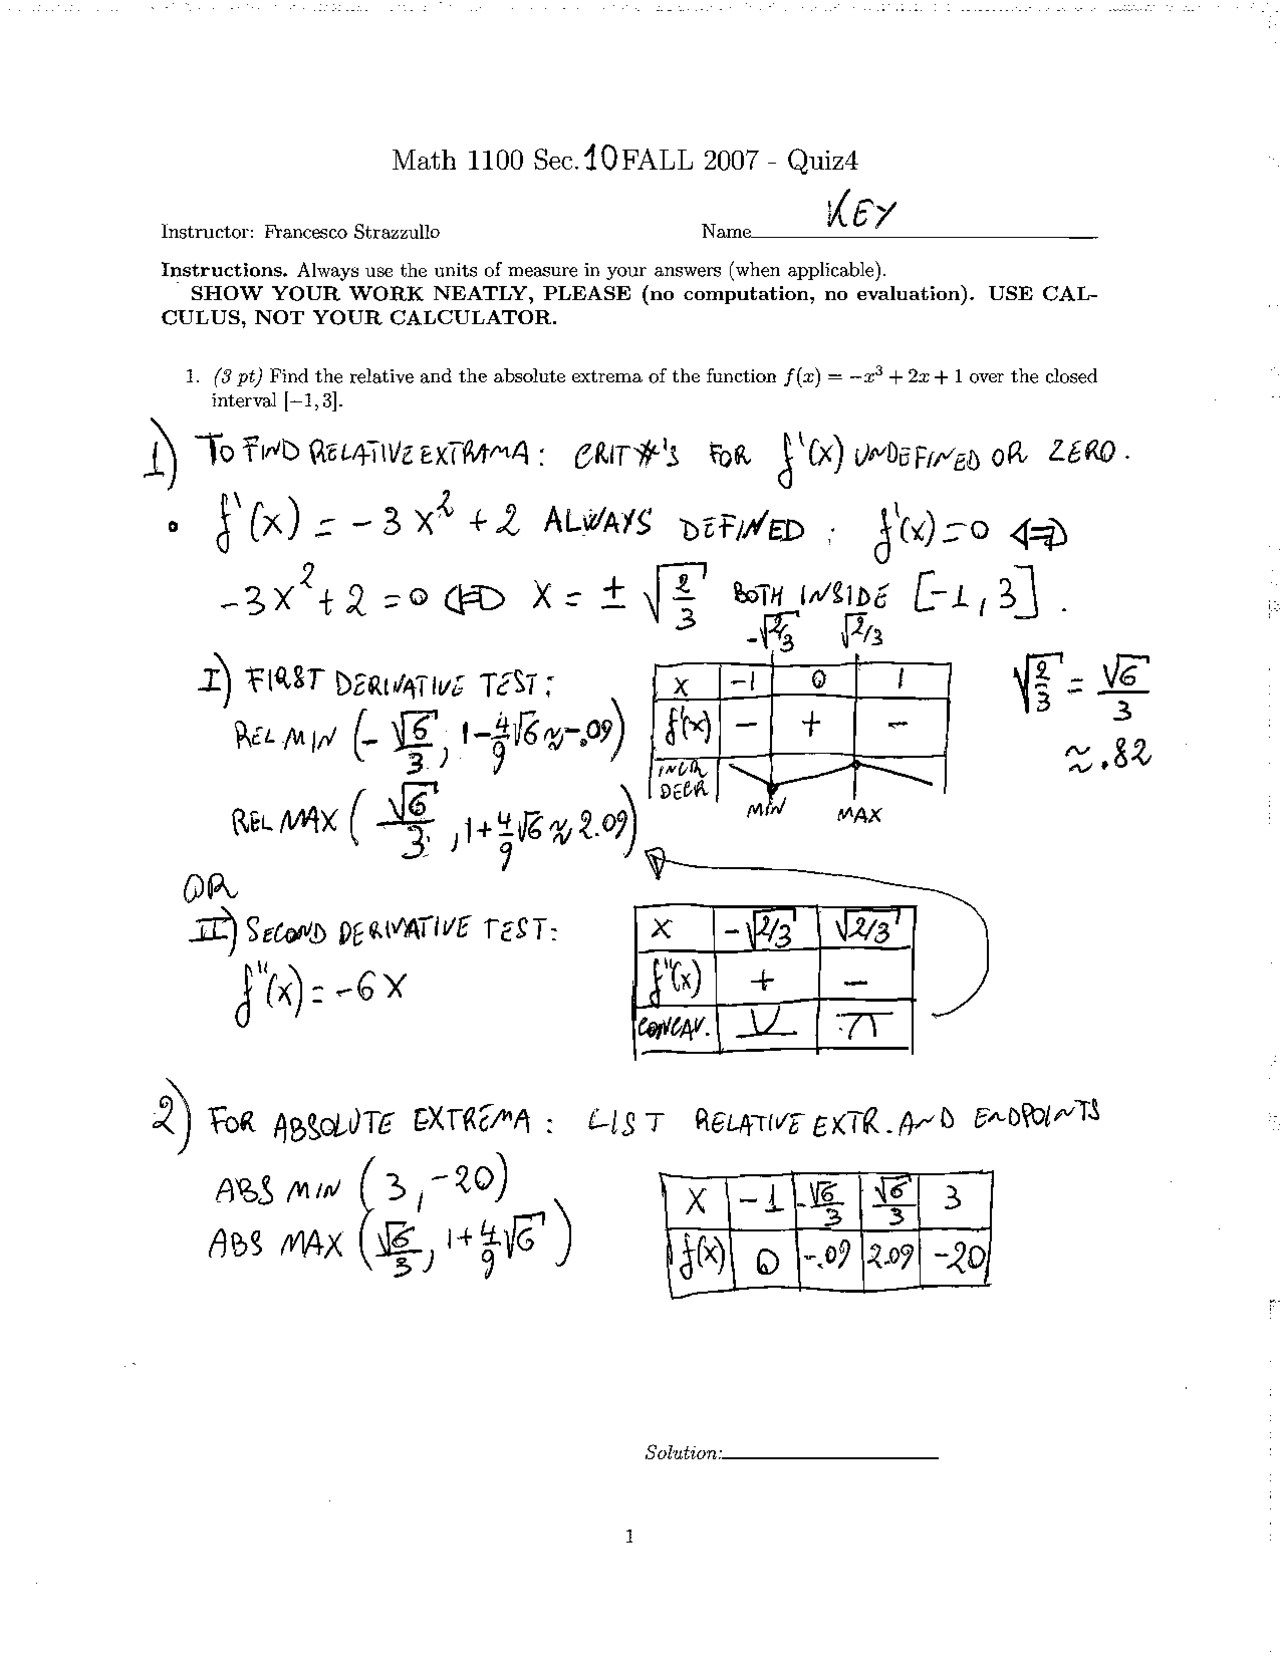 Math 1100 Sec. 10 FALL 2007 - Quiz4
KEY
Instructor: Francesco Strazzullo Name
Instructions. Always use the units of measure in your answers (when applicable).
SHOW YOUR WORK NEATLY, PLEASE (no computation, no evaluation). USE CAL-
CULUS, NOT YOUR CALCULATOR.
1. (3 pt) Find the relative and the absolute extrema of the function f(x) = −x³ + 2x + 1 over the closed
interval [−1, 3].
1) TO FIND RELATIVE EXTRAMA: CRIT #'S FOR f'(x) UNDEFINED OR ZERO.
• f'(x) = -3x² + 2 ALWAYS DEFINED; f'(x)=0 ⇔
-3x²+2 =0 ⇔ x = ± √(2/3) BOTH INSIDE [-1, 3].
-√2/3 √2/3
I) FIRST DERIVATIVE TEST: x -1 0 1 √(2/3) = √6/3
REL MIN (-√6/3, 1-4/9√6 ≈ -.09) f'(x) - + - ≈ .82
INCR DECR MIN MAX
REL MAX (√6/3, 1+4/9√6 ≈ 2.09)
OR
II) SECOND DERIVATIVE TEST: x -√2/3 √2/3
f''(x) = -6x f''(x) + -
CONCAV.
2) FOR ABSOLUTE EXTREMA: LIST RELATIVE EXTR. AND ENDPOINTS
ABS MIN (3, -20) x -1 -√6/3 √6/3 3
ABS MAX (√6/3, 1+4/9√6) f(x) 0 -.09 2.09 -20
Solution:
1